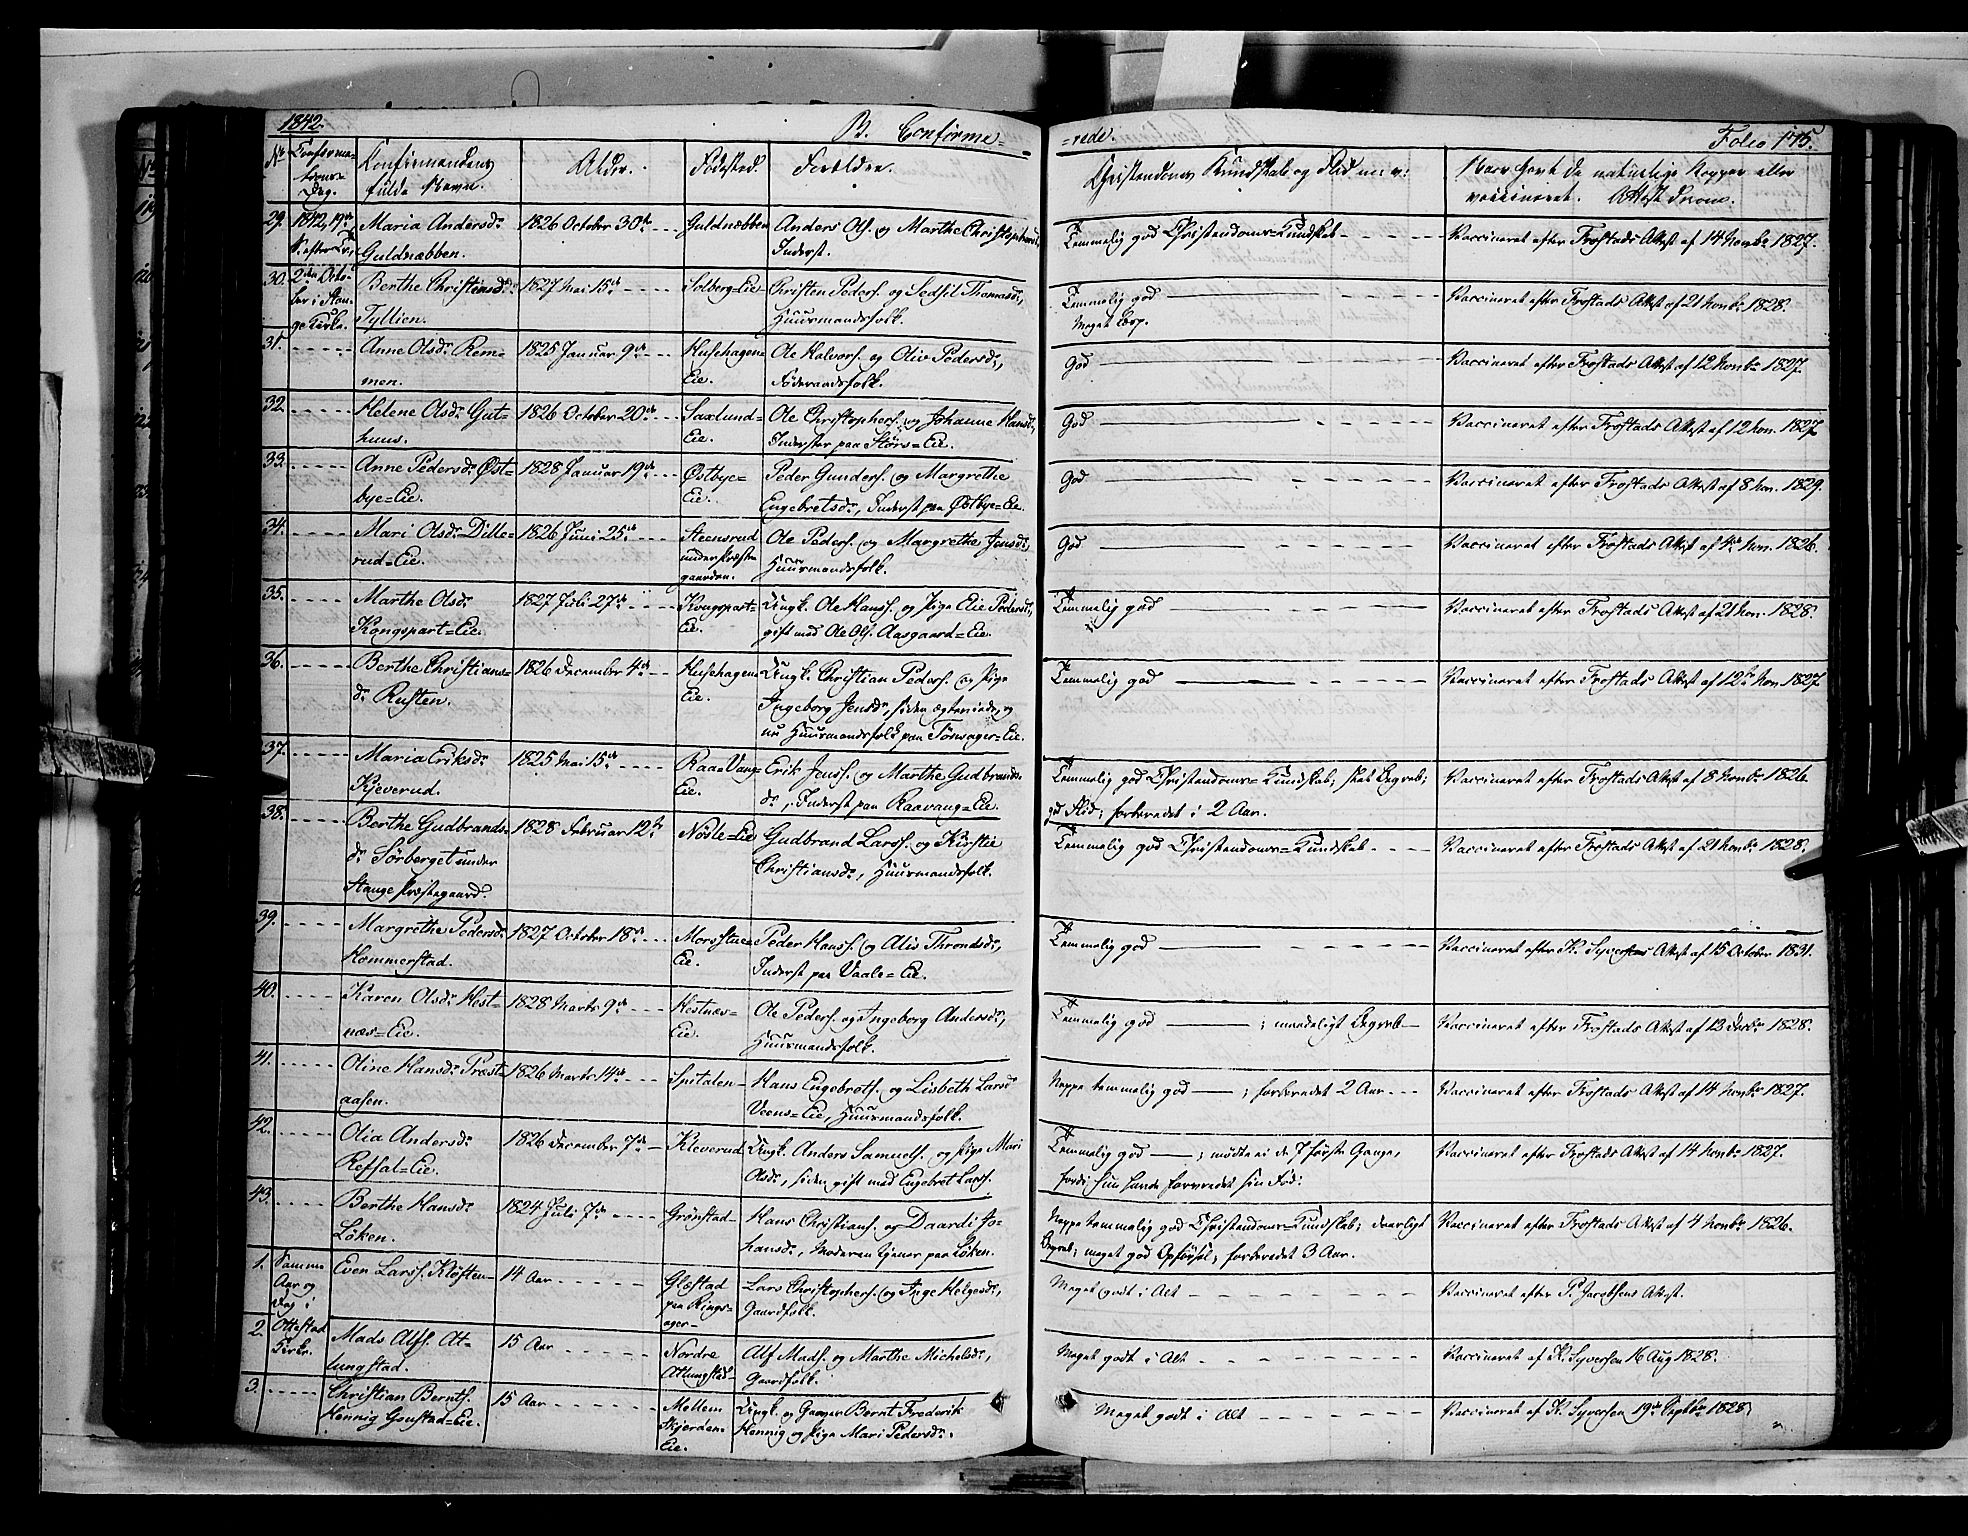 1842. B. Confirme= =rede. Folio 175.
No Confirma- tions- Dag. Confirmandens fulde Navn. Alder. Fødested. Forældre. Christendoms Kundskab og Flid m: v: Naar havt de naturlige Kopper eller vaccineret. Attest derom.
29. 1842, 19de S. efter Tr., Maria Andersdr Guldnæbben. 1826 October 30te Guldnæbben Anders Ols. og Marthe Christophersdr, Inderst. Temmelig god Christendoms=Kundskab Vaccineret efter Frostads Attest af 14 Novbr 1827.
30. 2den Octo- ber i Stan- ge Kirke. Berthe Christensdr Tyllien. 1827 Mai 15de Solberg=Eie Christen Peders. og Sedsil Thomasdr, Huusmandsfolk. Temmelig god Meget Børp. Vaccineret efter Frostads Attest af 21 Novbr 1828.
31. Anne Olsdr Rem- men. 1825 Januar 9de Husehagen= Eie. Ole Halvors. og Olie Pedersdr, Føderaadsfolk. God Vaccineret efter Frostads Attest af 12 Novbr 1827.
32. Helene Olsdr Gut- huus. 1826 October 20de Saxlund= Eie. Ole Christophers. og Johanne Hansdr, Inderster paa Størs=Eie. God Vaccineret efter Frostads Attest af 12 Nov. 1827.
33. Anne Pedersdr Øst- bye=Eie. 1828 Januar 19de Østbye= Eie. Peder Gunders. og Margrethe Engebretsdr, Inderst paa Østbye=Eie. God Vaccineret efter Frostads Attest af 8 Nov. 1829.
34. Mari Olsdr Dille- rud=Eie. 1826 Juni 25de Steensrud under Præste gaarden. Ole Peders. og Margrethe Jensdr, Huusmandsfolk. God Vaccineret efter Frostads Attest af 4de Nov. 1826.
35. Marthe Olsdr Kongspart=Eie. 1827 Juli 27de Kongspart= Eie. Ungk. Ole Hanss. og Pige Eie Pedersdr, gift med Ole Ols. Aasgaard=Eie. Temmelig god Vaccineret efter Frostads Attest af 21 Nov. 1828.
36. Berthe Christians- dr Rusten. 1826 December 4de Husehagen= Eie. Ungk. Christian Peders. og Pige Ingeborg Jensdr, siden ægteviede, og nu Huusmandsfolk paa Tønsager=Eie. Temmelig god Vaccineret efter Frostads Attest af 12te Nov. 1827.
37. Maria Eriksdr Kjeverud. 1825 Mai 15de Raae Vang= Eie. Erik Jenss. og Marthe Gudbrands- dr, Inderst paa Raavang=Eie. Temmelig god Christendoms=Kundskab; slet Begreb; god Flid; forberedet i 2 Aar. Vaccineret efter Frostads Attest af 8 Novbr 1826.
38. Berthe Gudbrands- dr Sørberget under Stange Præstegaard. 1828 Februar 12te Nøsle=Eie Gudbrand Larss. og Kirstie Christiansdr, Huusmandsfolk. Temmelig god Christendoms=Kundskab Vaccineret efter Frostads Attest af 21 Novbr 1828.
39. Margrethe Pedersdr Hommerstad. 1827 October 18de Morsstue= Eie. Peder Hanss. og Alis Throndsdr, Inderst paa Vaale=Eie. Temmelig god Vaccineret efter K. Syversens Attest af 15 October 1831.
40. Karen Olsdr Hest- næs=Eie. 1828 Marts 9de Hestnæs= Eie. Ole Peders. og Ingeborg Andersdr, Huusmandsfolk. Temmelig god ; maadeligt Begreb Vaccineret efter Frostads Attest af 13 Decbr 1828.
41. Oline Hansdr Præst- aasen. 1826 Marts 14de Spitalen Hans Engebreths. og Lisbeth Larsdr Veens=Eie, Huusmandsfolk. Neppe temmelig god ; forberedet 2 Aar Vaccineret efter Frostads Attest af 14 Novbr 1827.
42. Olia Andersdr Refsal=Eie. 1826 December 7de Kleverud Ungk. Anders Samuels. og Pige Mari Olsdr, siden gift med Engebret Larss. Temmelig god ; mødte ei de 7 første Gange, fordi hun havde forvredet sin Fod. Vaccineret efter Frostads Attest af 14 Novbr 1827.
43. Berthe Hansdr Løken. 1824 Juli 7de Grønstad Hans Christians. og Daardi Jo- hansdr, Moderen tjener paa Løken. Neppe temmelig god Christendoms=Kundskab; daarligt Begreb; meget god Opførsel; forberedet 3 Aar. Vaccineret efter Frostads Attest af 4 Novbr 1826.
1. Samme Aar og Dag i Even Larss. Kløften 14 Aar Glæstad paa Rings- ager Lars Christophers. og Inge Helgesdr, Gaardfolk. Meget godt i Alt Vaccineret efter P. Jacobsens Attest.
2. Ottestad Kirke. Mads Alfs. At- lungstad. 15 Aar Nordre Atlungstad Alf Mads. og Marthe Michelsdr, Gaardfolk. Meget godt i Alt Vaccineret af K. Syversen 16 Aug 1828.
3. Christian Bernts. Hennig Gjønstad=Eie. 15 Aar Mellem Skjerden= Eie. Ungk. og Bernt Frederik Hennig og Pige Mari Pedersdr. Meget godt i Alt Vaccineret af K. Syversen 19de Septbr 1828.